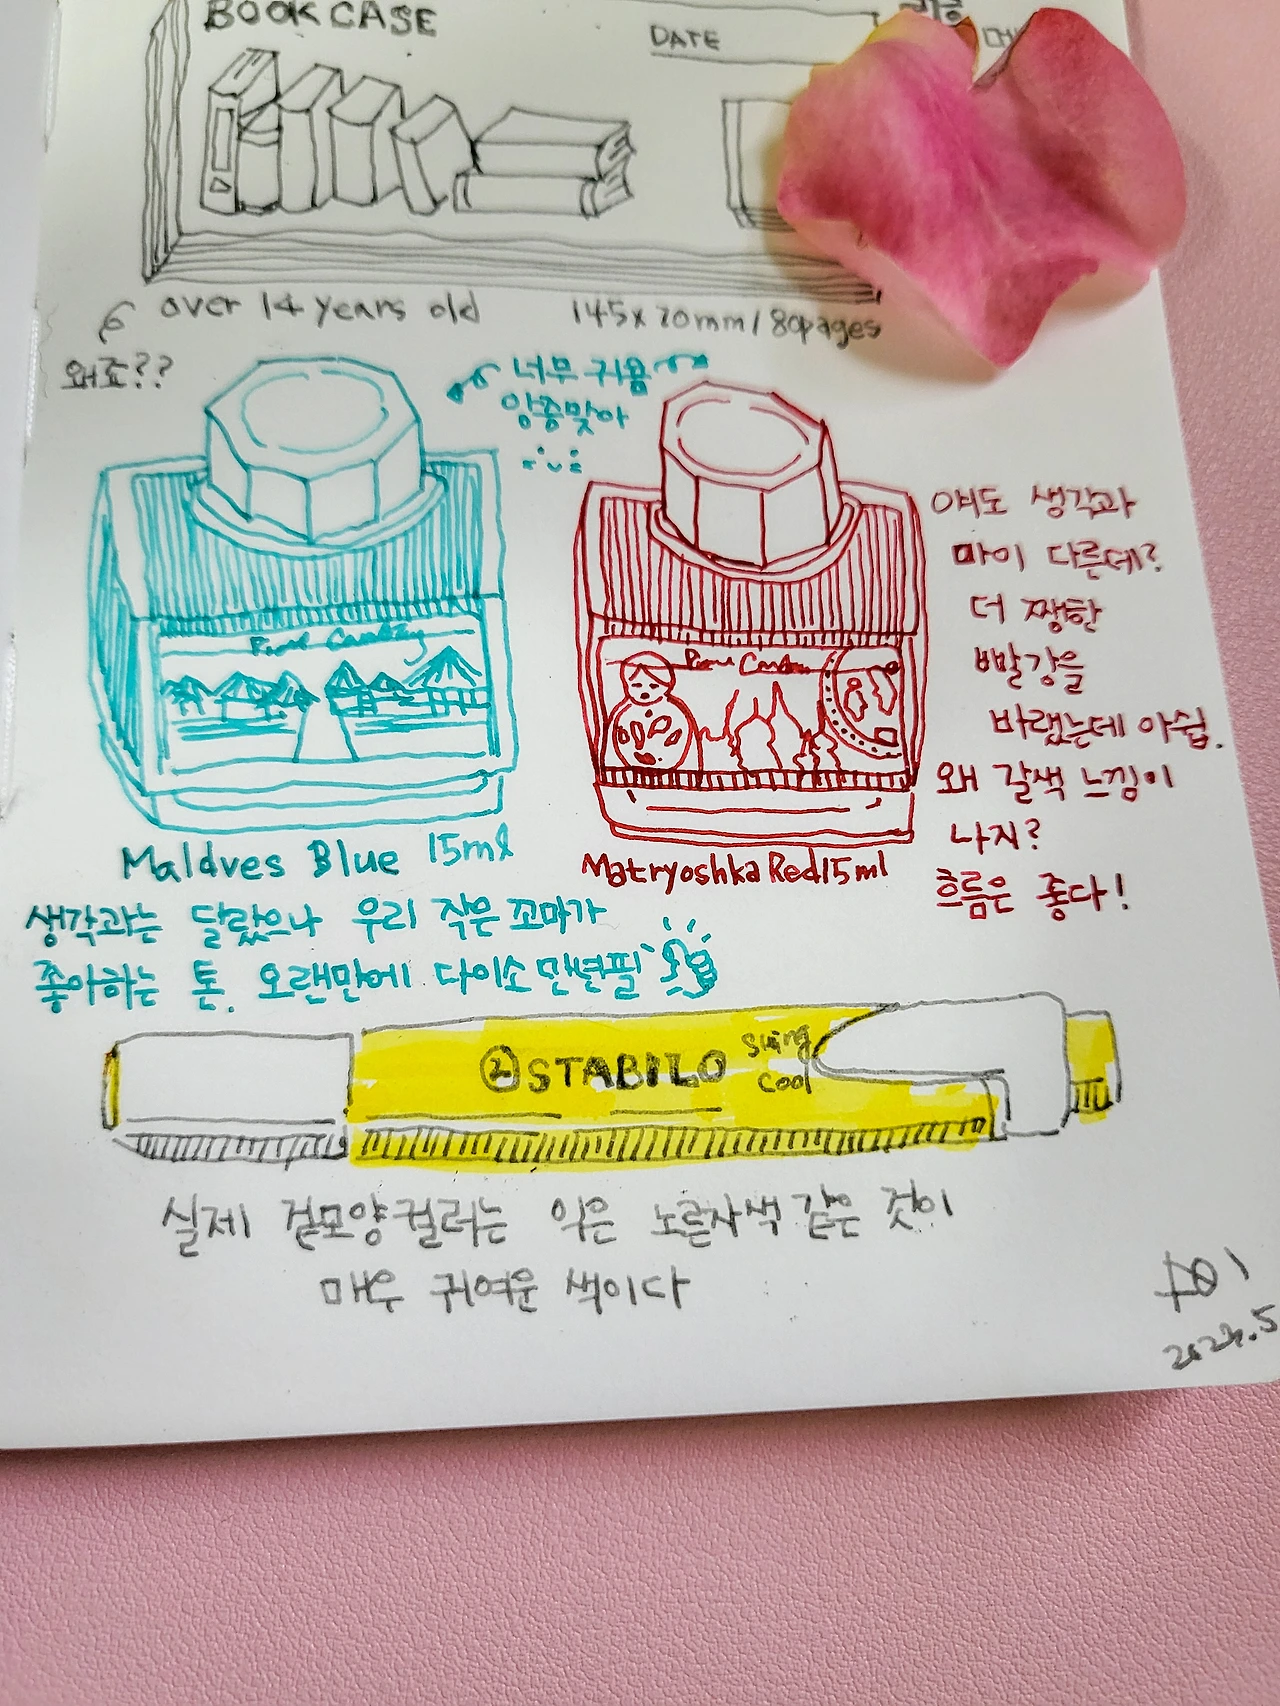 BOOK CASE
DATE
over 14 years old
145x70mm/80pages
왜죠??
너무 귀욤
앙증맞아
얘도 생각과
마이 다른데?
더 쨍한
빨강을
바랬는데 아쉽.
왜 갈색 느낌이
나지?
흐름은 좋다!
Maldves Blue 15ml
Matryoshka Red 15ml
생각과는 달랐으나 우리 작은 꼬마가
좋아하는 톤. 오랜만에 다이소 만년필
② STABILO
swing
cool
실제 겉모양 컬러는 익은 노른자색 같은 것이
매우 귀여운 색이다